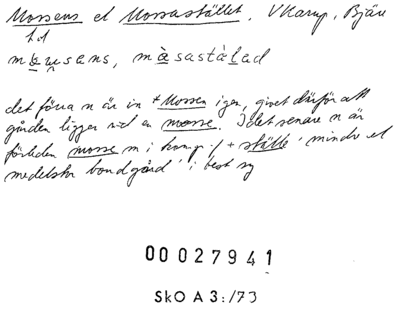 Mossens el Mossastället, VKarup, Bjäre
hd
mɷu̲sans, màsastàlad
det förra n är in + Mossen igen, givet därför att
gården ligger vid en mosse. I det senare n är
förleden mosse m i komp :/ + ställe 'mindre el
medelstor bondgård' i best sg
00027941
SkO A 3:/73